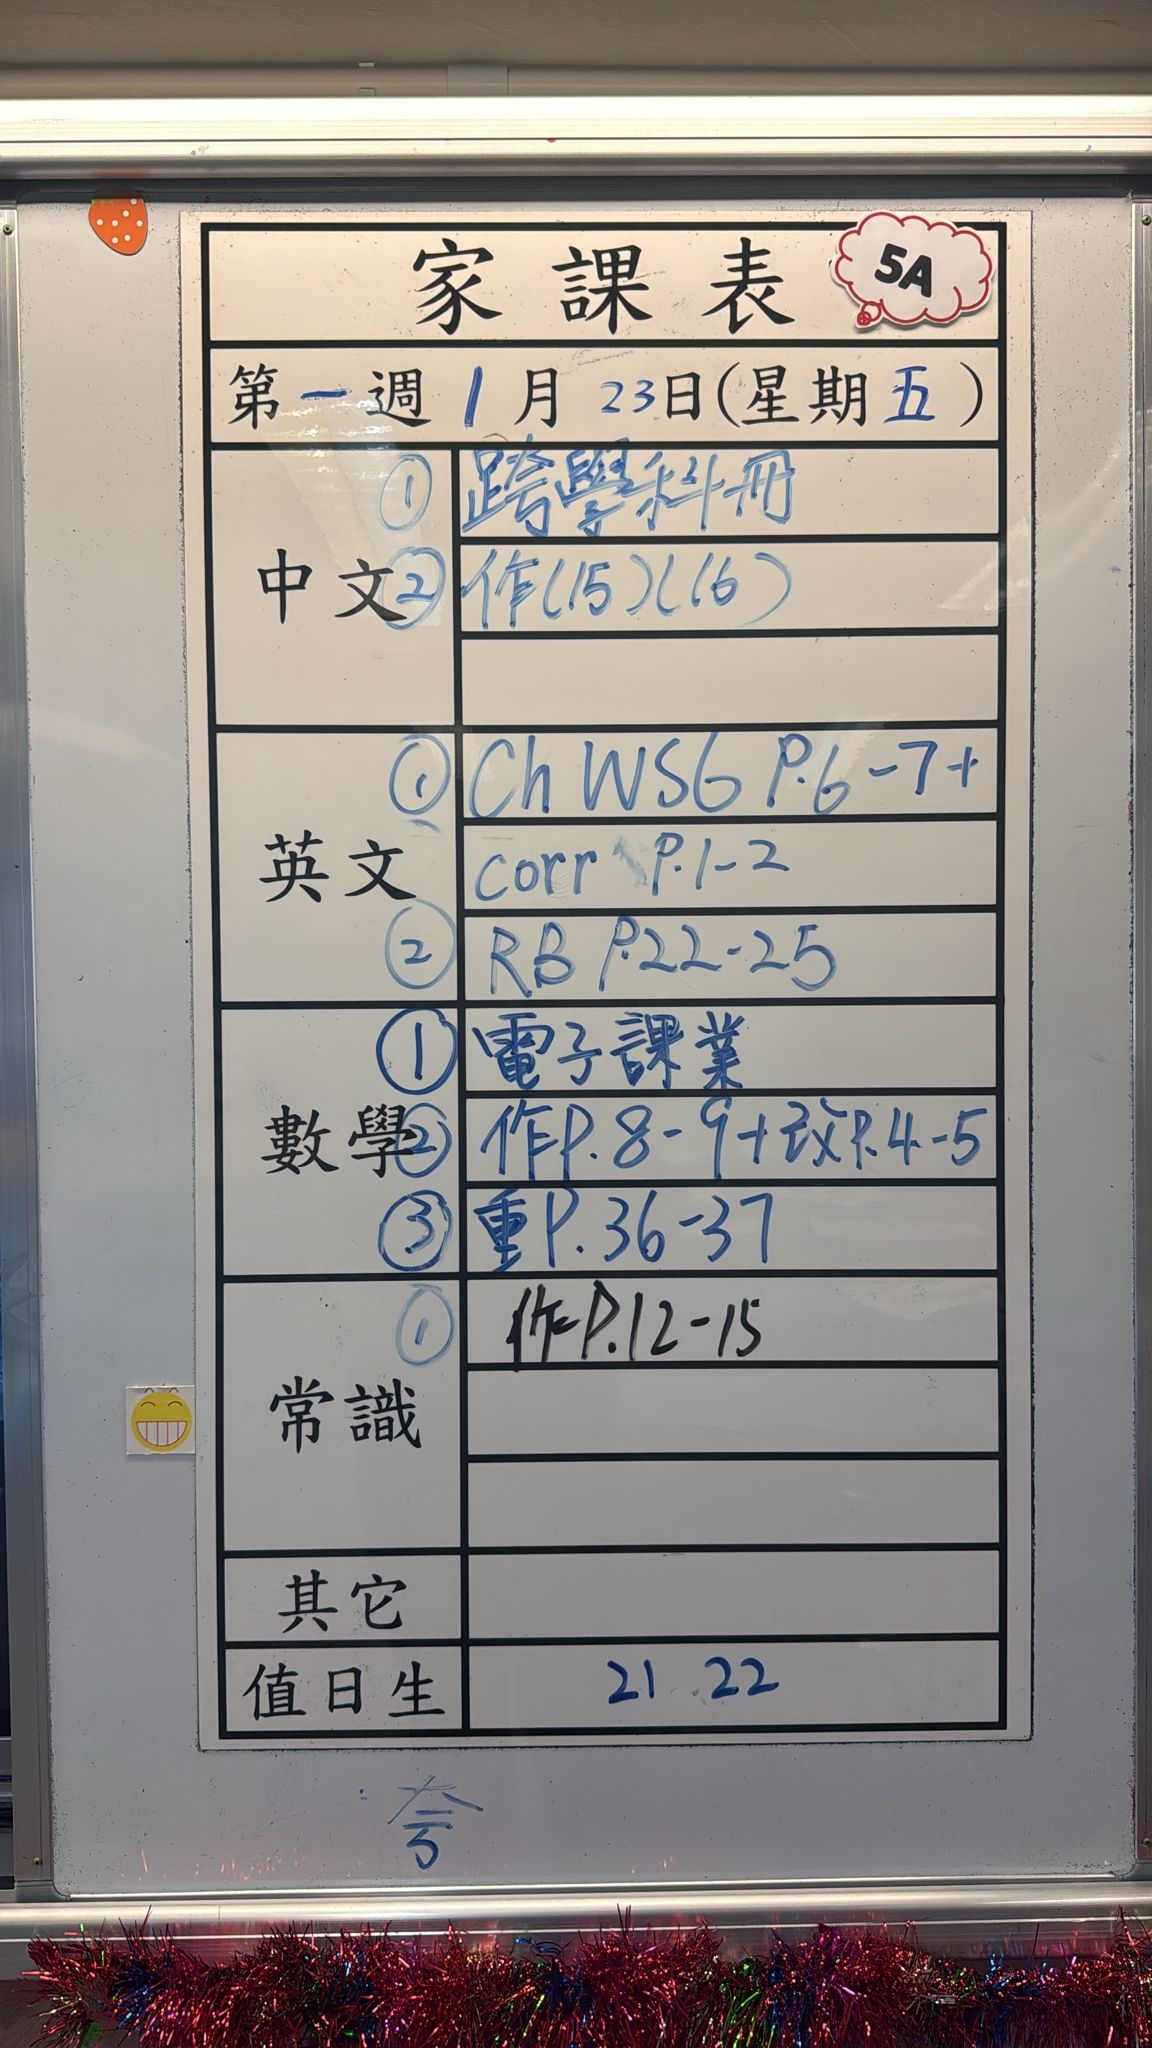 家課表 5A
第一週 1月 23日(星期五)
中文
① 跨學科冊
② 作(15)(16)
英文
① Ch WS6 P.6-7+
corr P.1-2
② RB P.22-25
數學
① 電子課業
② 作P.8-9+改P.4-5
③ 重P.36-37
常識
① 作P.12-15
其它
值日生 21 22
夸